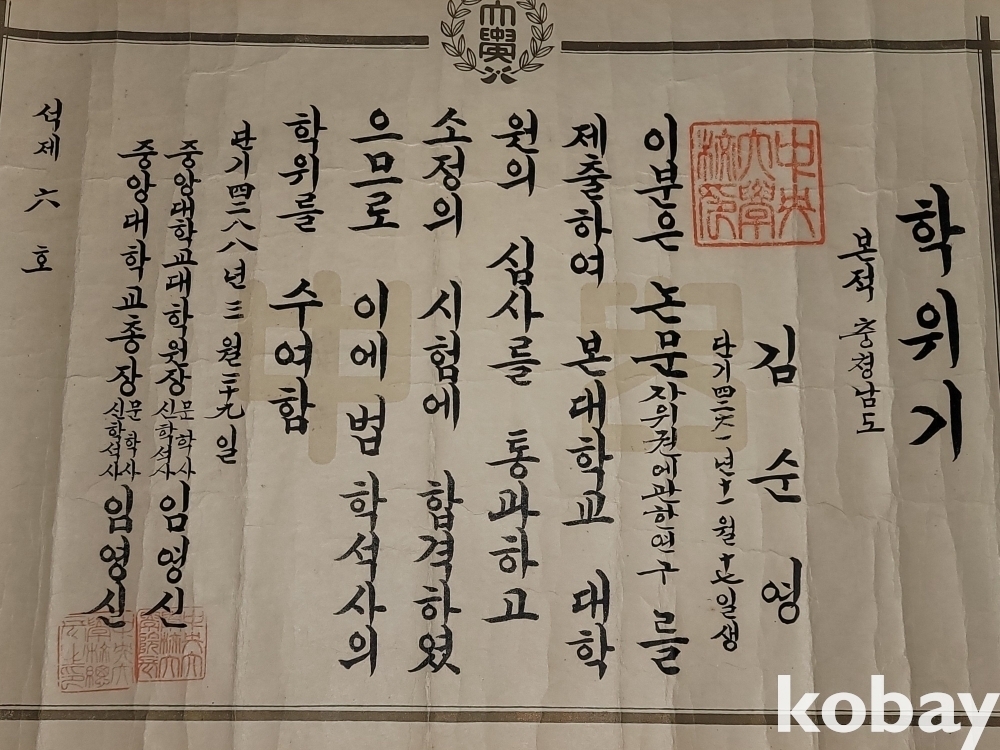 大學
학위기
본적 충청남도
김순영
단기四二六一년十一월十七일생
中央
大學
校印
이분은 논문자위권에관한연구를
제출하여 본대학교 대학
원의 심사를 통과하고
소정의 시험에 합격하였
으므로 이에 법학석사의
학위를 수여함
단기四二八八년三월二十九일
중앙대학교대학원장 문학사 신학석사 임영신
중앙대학교총장 문학사 신학석사 임영신
석제六호
kobay